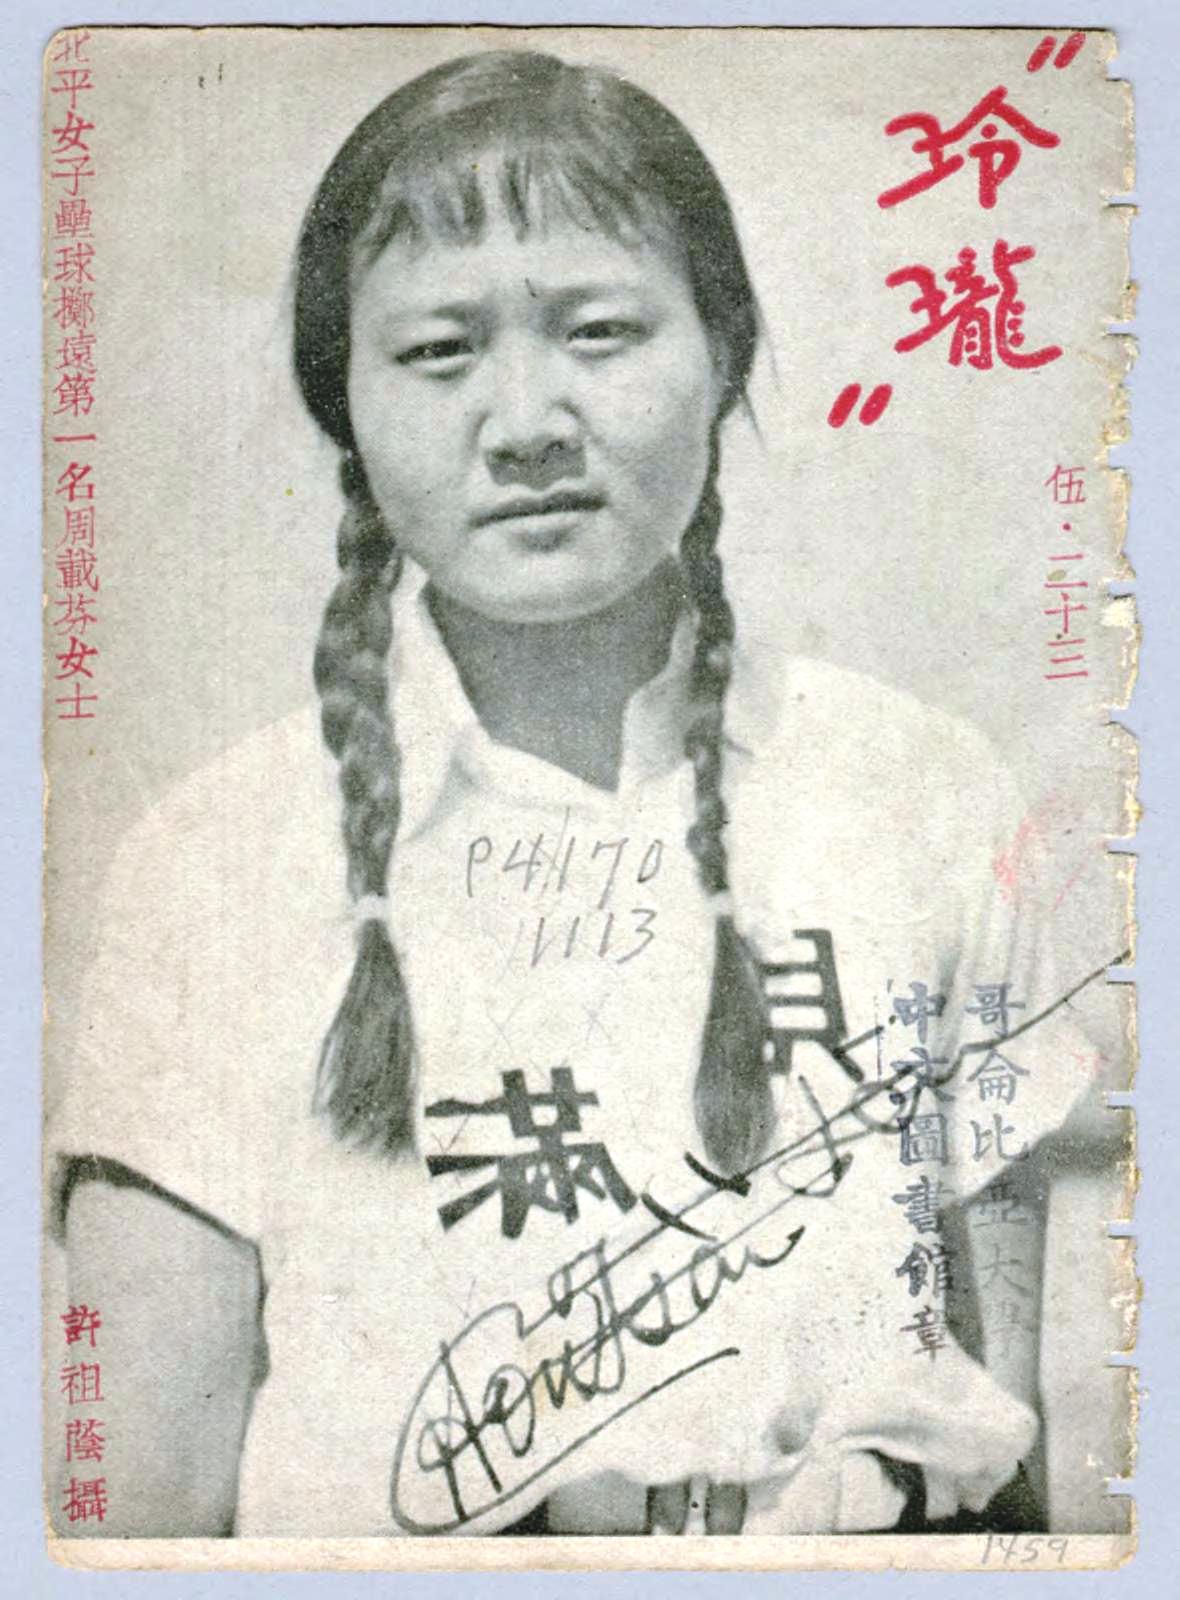 "玲瓏"
伍·二十三
北平女子壘球擲遠第一名周載芬女士
許祖蔭攝
哥倫比亞大學
中文圖書館章
滿
1459